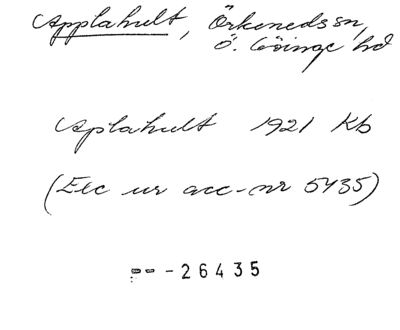 Applahult, Örkeneds sn,
Ö. Göinge hd
Aplahult 1921 Kb
(Exc ur acc-nr 5435)
-26435